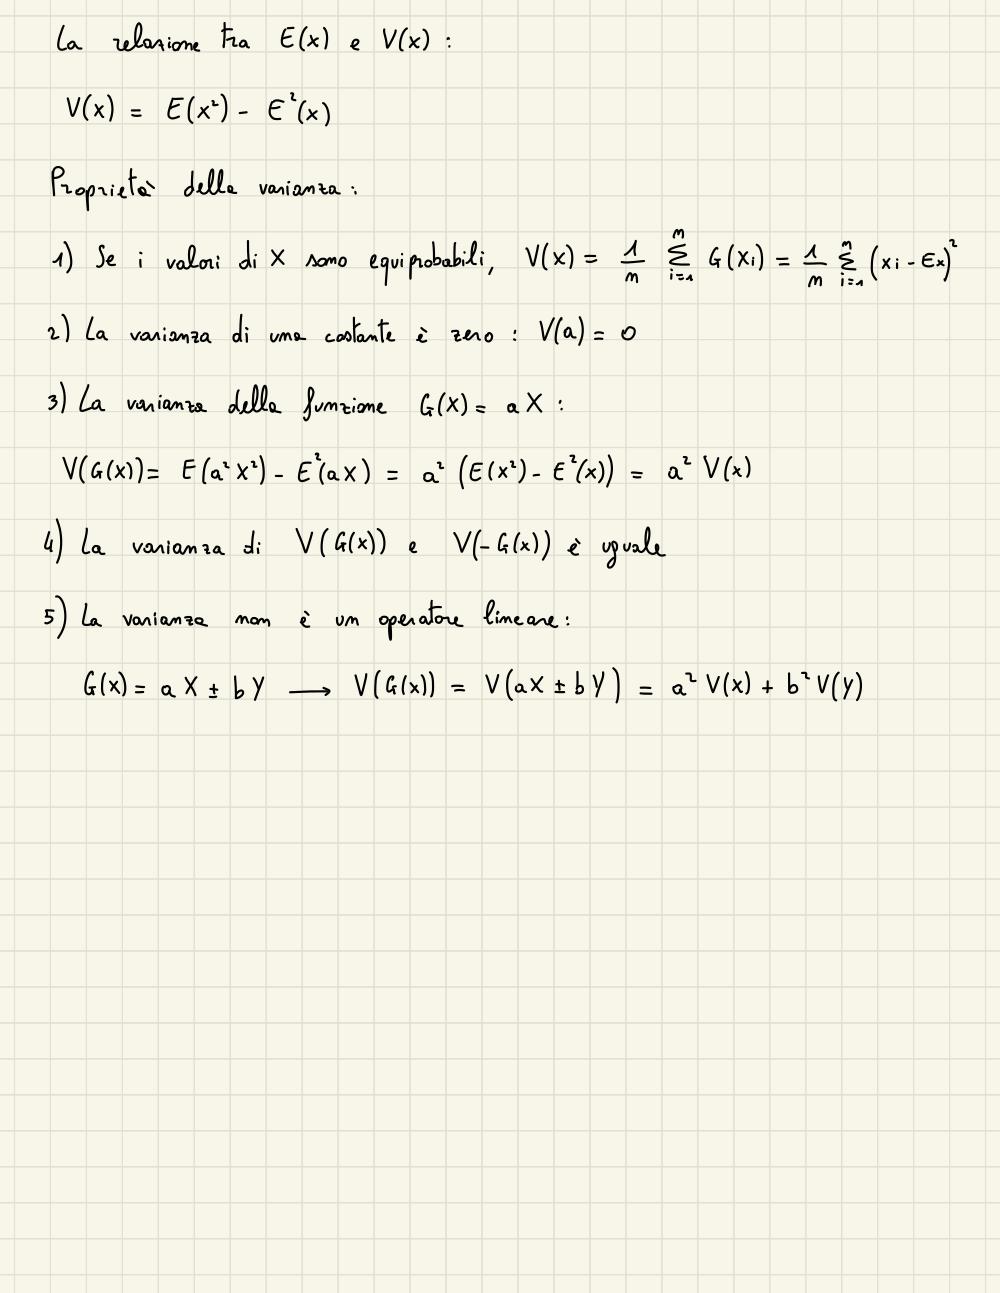 La relazione tra E(x) e V(x) :
V(x) = E(x²) - E²(x)
Proprietà della varianza :
1) Se i valori di X sono equiprobabili, V(x) = 1/n Σ_{i=1}^{n} G(xi) = 1/n Σ_{i=1}^{n} (xi - Ex)²
2) La varianza di una costante è zero : V(a) = 0
3) La varianza della funzione G(X) = a X :
V(G(x)) = E(a² X²) - E²(aX) = a² (E(x²) - E²(x)) = a² V(x)
4) La varianza di V(G(x)) e V(-G(x)) è uguale
5) La varianza non è un operatore lineare :
G(x) = a X ± b Y ⟶ V(G(x)) = V(aX ± b Y) = a² V(x) + b² V(y)